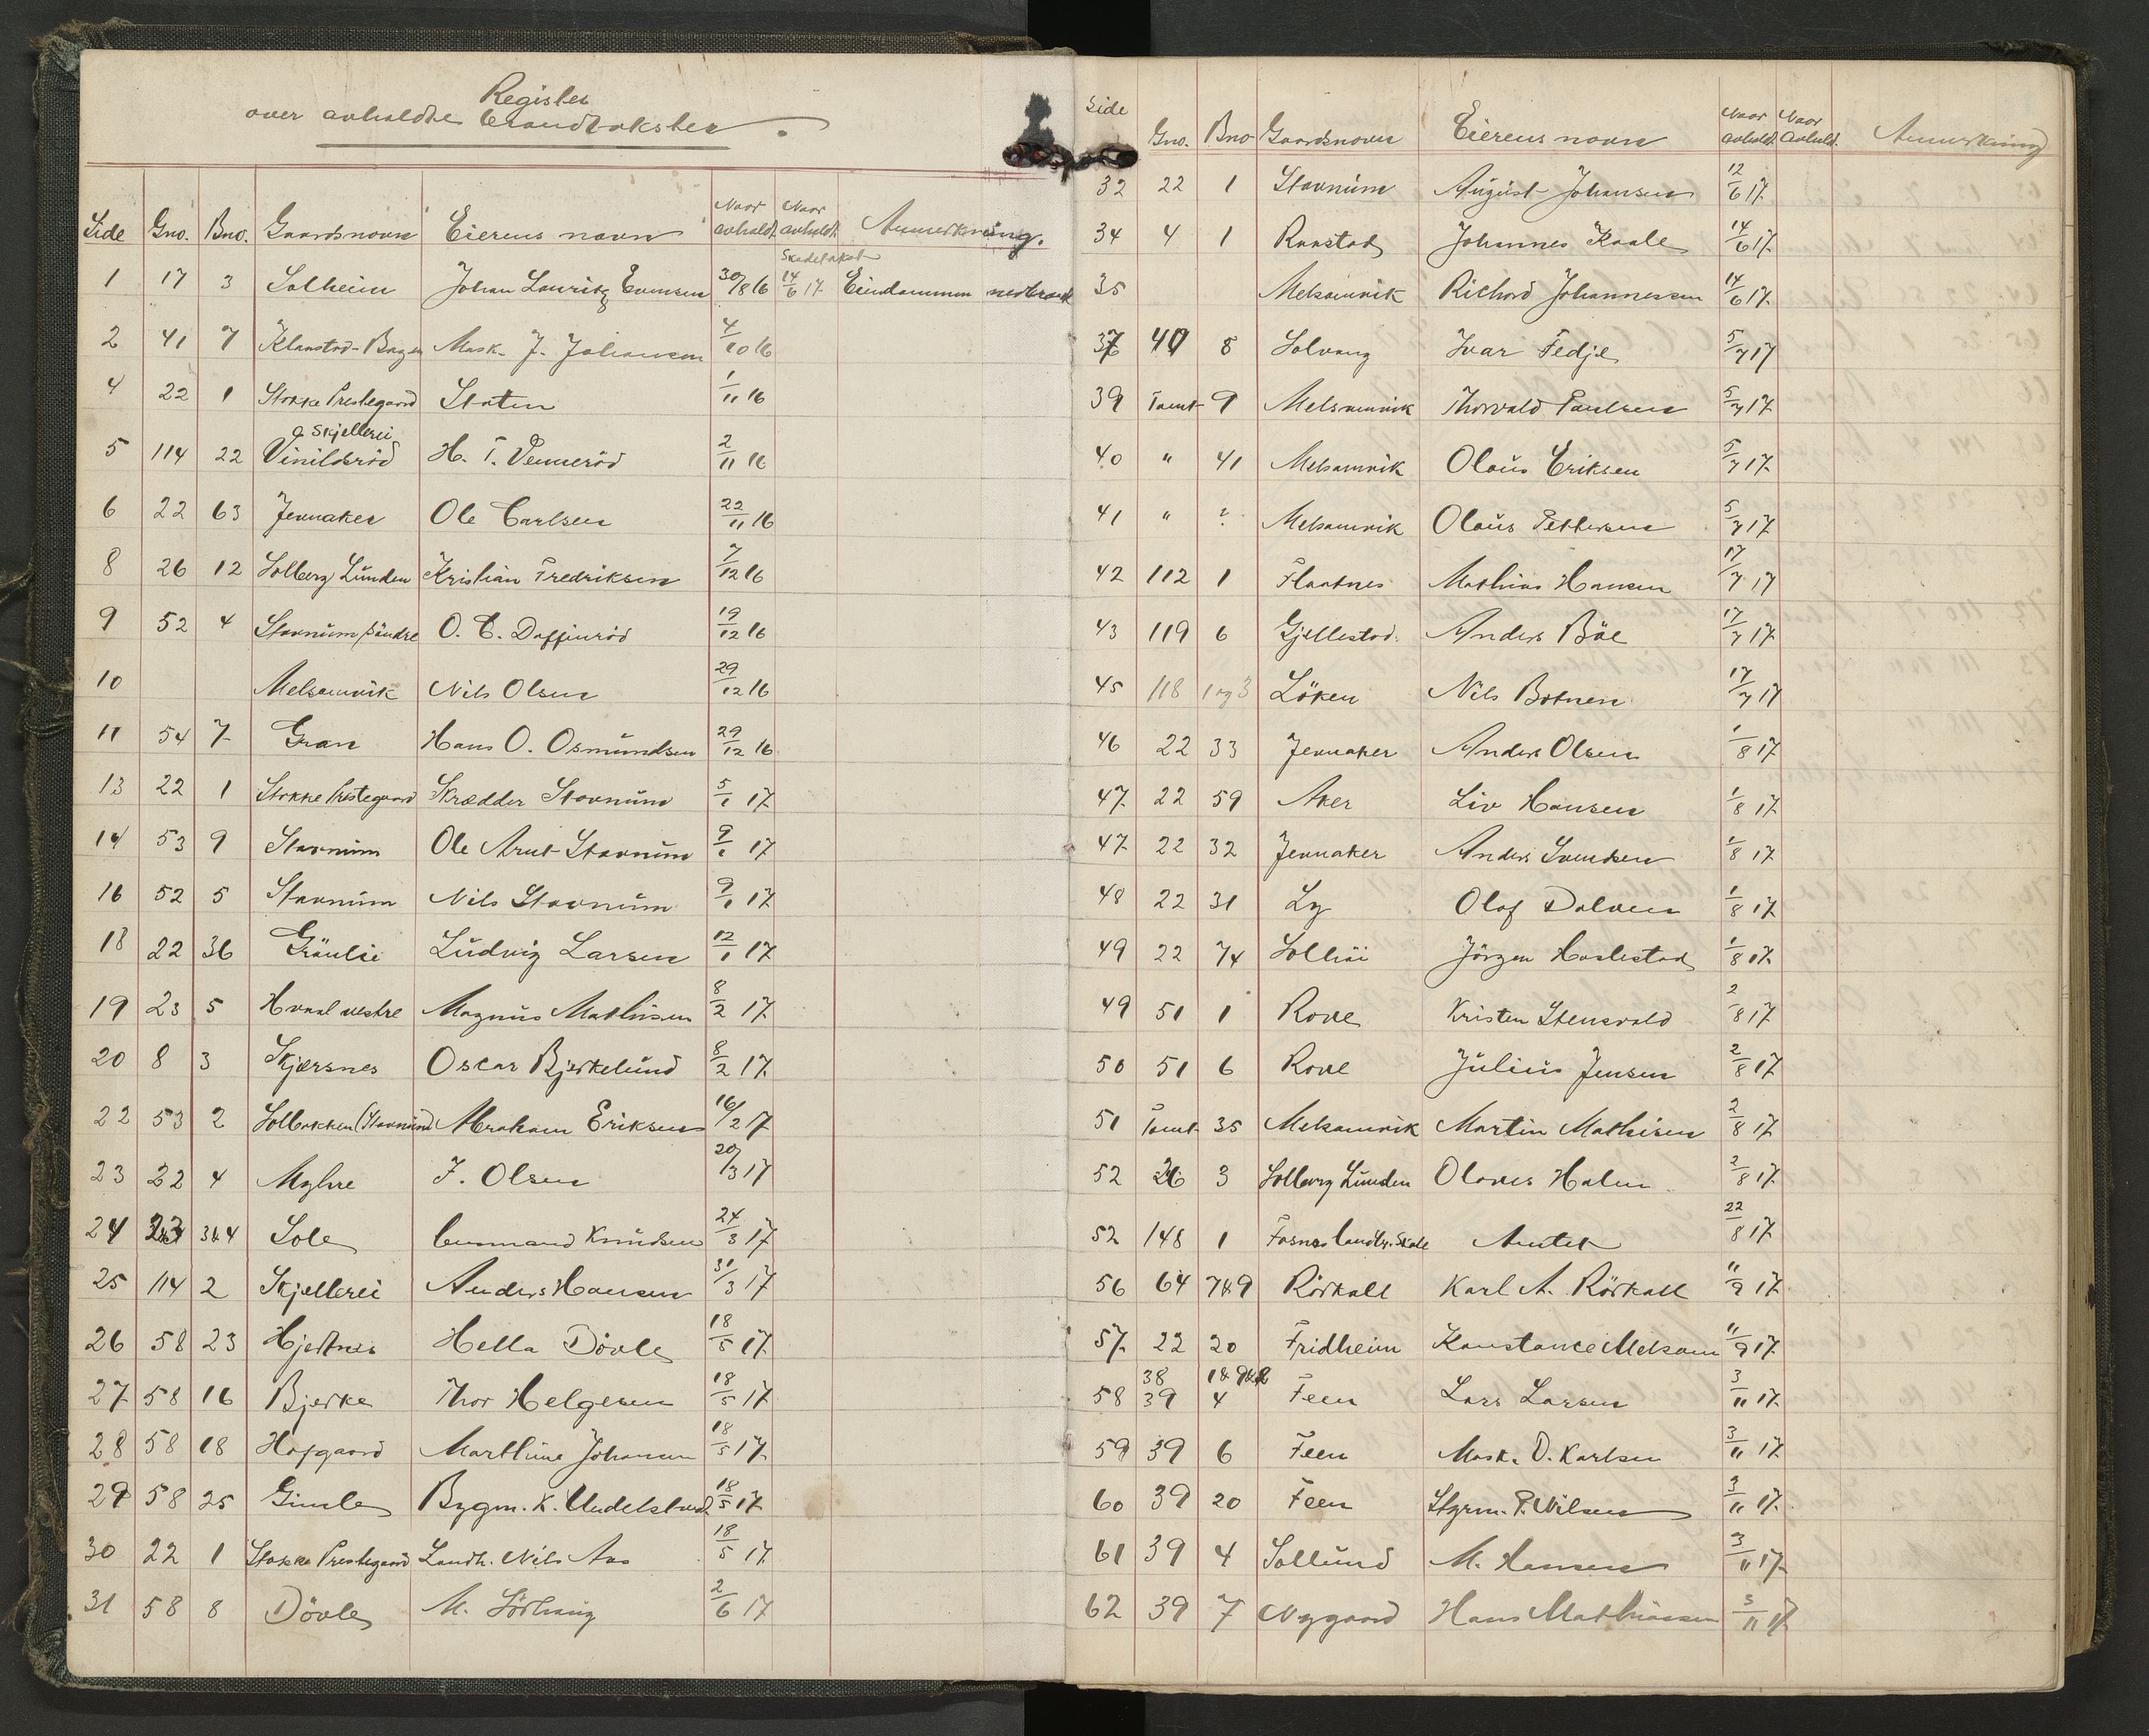 Register
over avholdte Brandtakster.
Side Gno. Bno. Gaardsnavn Eierens navn Naar avholdt. Naar avholdt. Anmerkning.
1 17 3 Solheim Johan Lauritz Evensen 30/8 16 Skadetakst 14/6 17 Eiendommen nedbrændt
2 41 7 Klanstad-Bagen Mask. J. Johansen 4/10 16
4 22 1 Stokke Prestegaard Staten 1/11 16
5 114 22 Vinildsröd a Skjellerei H. T. Venneröd 2/11 16
6 22 63 Jernaker Ole Carlsen 22/11 16
8 26 12 Solberg Lunden Kristian Fredriksen 7/12 16
9 52 4 Stavnum söndre O. C. Daffinröd 19/12 16
10 Melsomvik Nils Olsen 29/12 16
11 54 7 Gran Hans O. Osmundsen 29/12 16
13 22 1 Stokke Prestegaard Skrædder Stavnum 5/1 17
14 53 9 Stavnum Ole Arnt Stavnum 9/1 17
16 52 5 Stavnum Nils Stavnum 9/1 17
18 22 36 Grönlie Ludvig Larsen 12/1 17
19 23 5 Hvaal vestre Magnus Mathisen 8/2 17
20 8 3 Skjærsnes Oscar Bjerkelund 8/2 17
22 53 2 Solbakken (Stavnum) Abraham Eriksen 16/2 17
23 22 4 Myhre J. Olsen 20/3 17
24 23 3&4 Sole Gunnard Knudsen 24/3 17
25 114 2 Skjellerei Anders Hansen 31/3 17
26 58 23 Hjertnes Hella Dövle 18/5 17
27 58 16 Bjerke Thor Helgesen 18/5 17
28 58 18 Hafgaard Marthine Johansen 18/5 17
29 58 25 Gimle Bygm. K. Undelstvedt 18/5 17
30 22 1 Stokke Prestegaard Landh. Nils Aas 18/5 17
31 58 8 Dövle M. Sörhaug 2/6 17
Side Gno. Bno Gaardsnavn Eierens navn Naar avholdt. Naar avholdt. Anmerkning
32 22 1 Stavnum August Johansen 12/6 17
34 4 1 Ranstad Johannes Kaale 14/6 17
35 Melsomvik Richard Johannessen 14/6 17
37 40 8 Solvang Ivar Fedje 5/7 17
39 Tomt 9 Melsomvik Thorvald Paulsen 5/7 17
40 " 41 Melsomvik Olaus Eriksen 5/7 17
41 " ? Melsomvik Olaus Pettersen 5/7 17
42 112 1 Flaatnes Mathias Hansen 17/7 17
43 119 6 Gjellestad Anders Böe 17/7 17
45 118 1 og 3 Löken Nils Botnen 17/7 17
46 22 33 Jernaker Anders Olsen 1/8 17
47 22 59 Aker Liv Hansen 1/8 17
47 22 32 Jernaker Anders Svendsen 1/8 17
48 22 31 Ly Olaf Dalven 1/8 17
49 22 74 Solhöi Jörgen Haslestad 1/8 17
49 51 1 Rove Kristen Stensvold 2/8 17
50 51 6 Rove Julius Jensen 2/8 17
51 Tomt 35 Melsomvik Martin Mathisen 2/8 17
52 26 3 Solberg Lunden Olaves Holm 2/8 17
52 148 1 Fosnes landbr. Skole Amtet 22/8 17
56 64 7&9 Rörkoll Karl A. Rörkoll 11/9 17
57 22 20 Fridheim Konstance Melsom 11/9 17
38 1& 9&2
58 39 4 Feen Lars Larsen 3/11 17
59 39 6 Feen Mask. O. Karlsen 3/11 17
60 39 20 Feen Styrm. P. Nilsen 3/11 17
61 39 4 Sollund M. Hansen 3/11 17
62 39 7 Nygaard Hans Mathiassen 3/11 17